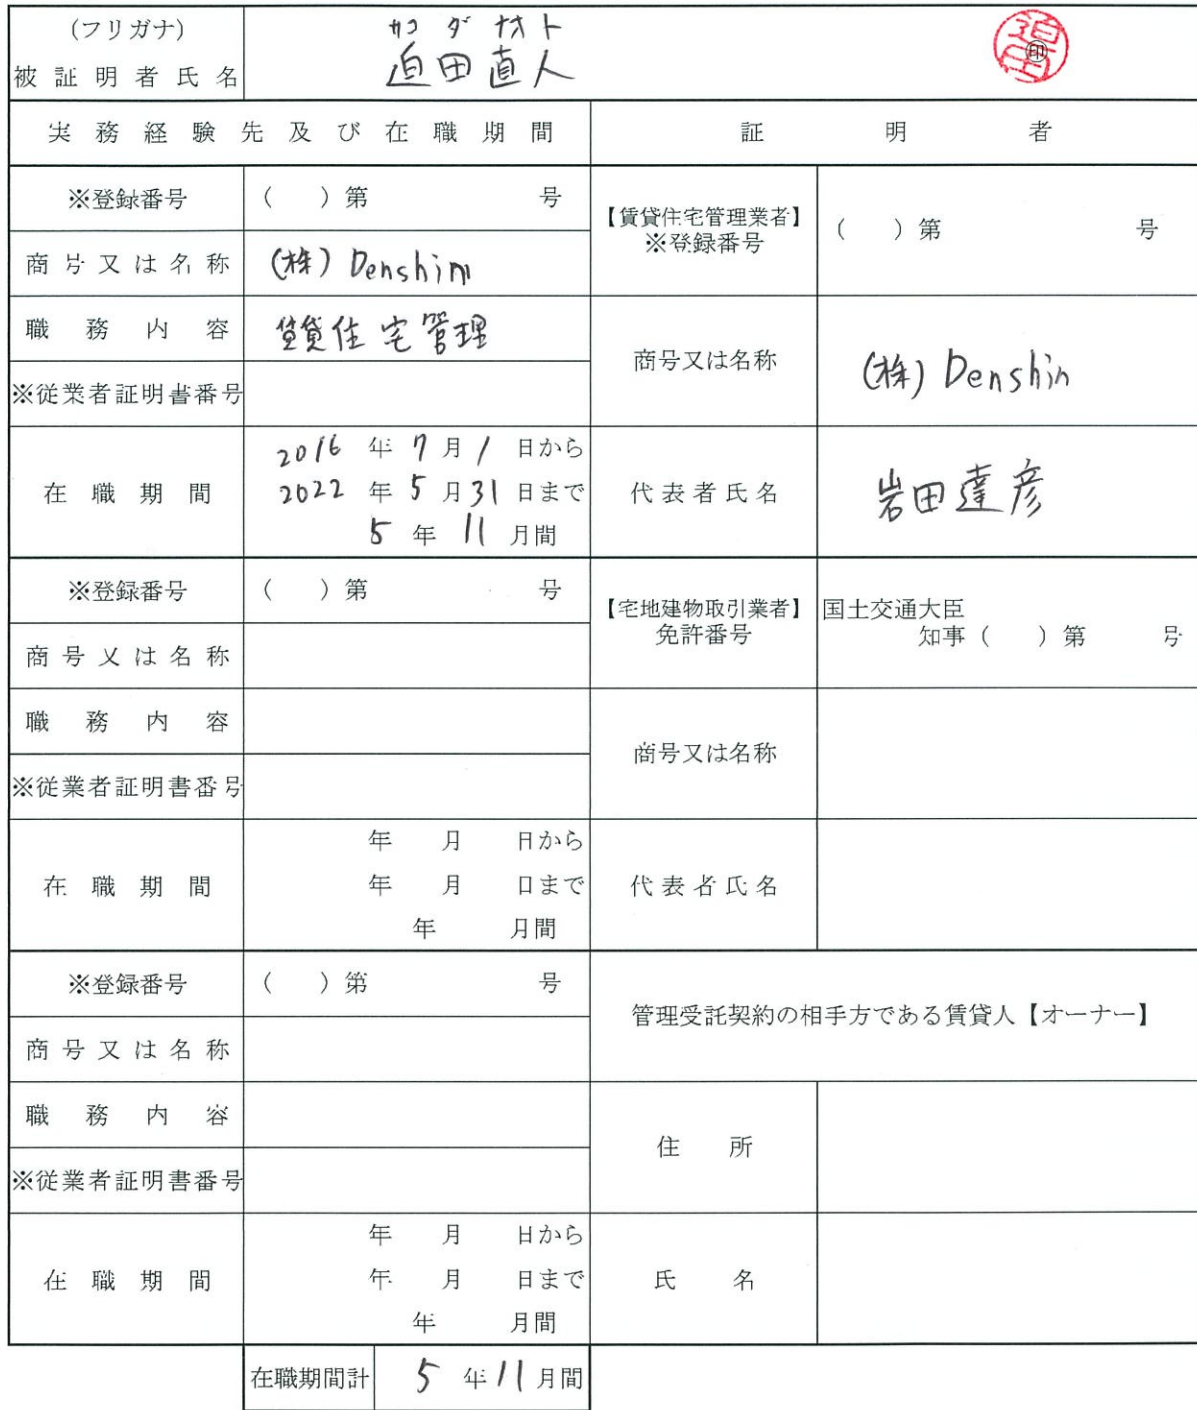 (フリガナ) サコ ダ ナオト
被証明者氏名 迫田直人 迫田 ㊞
実務経験先及び在職期間 証明者
※登録番号 ( )第 号
【賃貸住宅管理業者】
※登録番号 ( )第 号
商号又は名称 (株)Denshin
職務内容 賃貸住宅管理
商号又は名称 (株)Denshin
※従業者証明書番号
在職期間
2016年7月1日から
2022年5月31日まで
5年11月間
代表者氏名 岩田達彦
※登録番号 ( )第 号
【宅地建物取引業者】
免許番号
国土交通大臣
知事( )第 号
商号又は名称
職務内容
商号又は名称
※従業者証明書番号
在職期間
年 月 日から
年 月 日まで
年 月間
代表者氏名
※登録番号 ( )第 号
管理受託契約の相手方である賃貸人【オーナー】
商号又は名称
職務内容
住所
※従業者証明書番号
在職期間
年 月 日から
年 月 日まで
年 月間
氏名
在職期間計 5年11月間